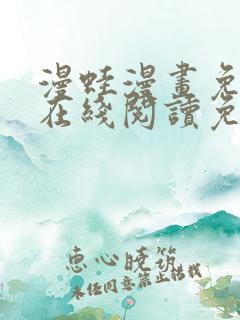 漫蛙漫畫免
在綫閱讀免
惠心曉筑
未经同意禁止搭载